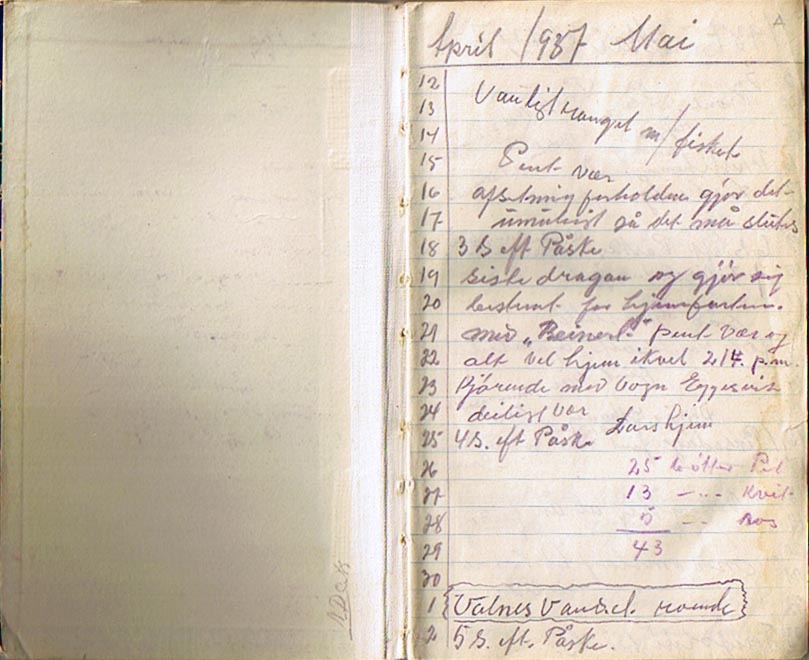 April 1937 Mai
12
13 Vanligt mangel m/ fisket
14
15 Pent vær
16 afsetnig forholdene gjør det
17 umuligt så det må sluttes
18 3 S. eft Påske
19 siste dragan og gjør sig
20 for hjemfarten.
21 med "Reinert" pent vær og
22 alt vel hjem ikvel 2/4. p.m.
23 Kjørende med vogn
24 deiligt vær
25 4 S. eft Påske Lars hjem
26 25 bøtter Pet
27 13 -..- Kvit
28 5 -..-
29 43
30
1 Valnes Vandel.
2 5 S. eft. Påske.